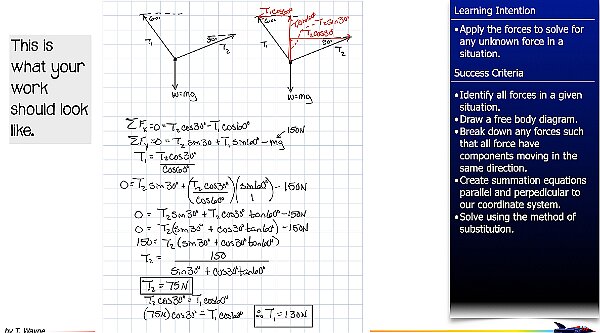 This is
what your
work
should look
like.
60°
T₁
30°
T₂
w=mg
T₁cos60°
60°
T₁sin60°
T₂sin30°
T₂cos30°
T₁
30°
T₂
w=mg
ΣFx=0=T₂cos30°-T₁cos60°
150N
ΣFy=0=T₂sin30°+T₁sin60°-mg
T₁=T₂cos30°/cos60°
0=T₂sin30°+(T₂cos30°/cos60°)(sin60°/1)-150N
0=T₂sin30°+T₂cos30°tan60°-150N
0=T₂(sin30°+cos30°tan60°)-150N
150=T₂(sin30°+cos30°tan60°)
T₂=150/sin30°+cos30°tan60°
T₂=75N
T₂cos30°=T₁cos60°
(75N)cos30°=T₁cos60°
∴T₁=130N
Learning Intention
•Apply the forces to solve for
any unknown force in a
situation.
Success Criteria
•Identify all forces in a given
situation.
•Draw a free body diagram.
•Break down any forces such
that all force have
components moving in the
same direction.
•Create summation equations
parallel and perpedicular to
our coordinate system.
•Solve using the method of
substitution.
by T. Wayne